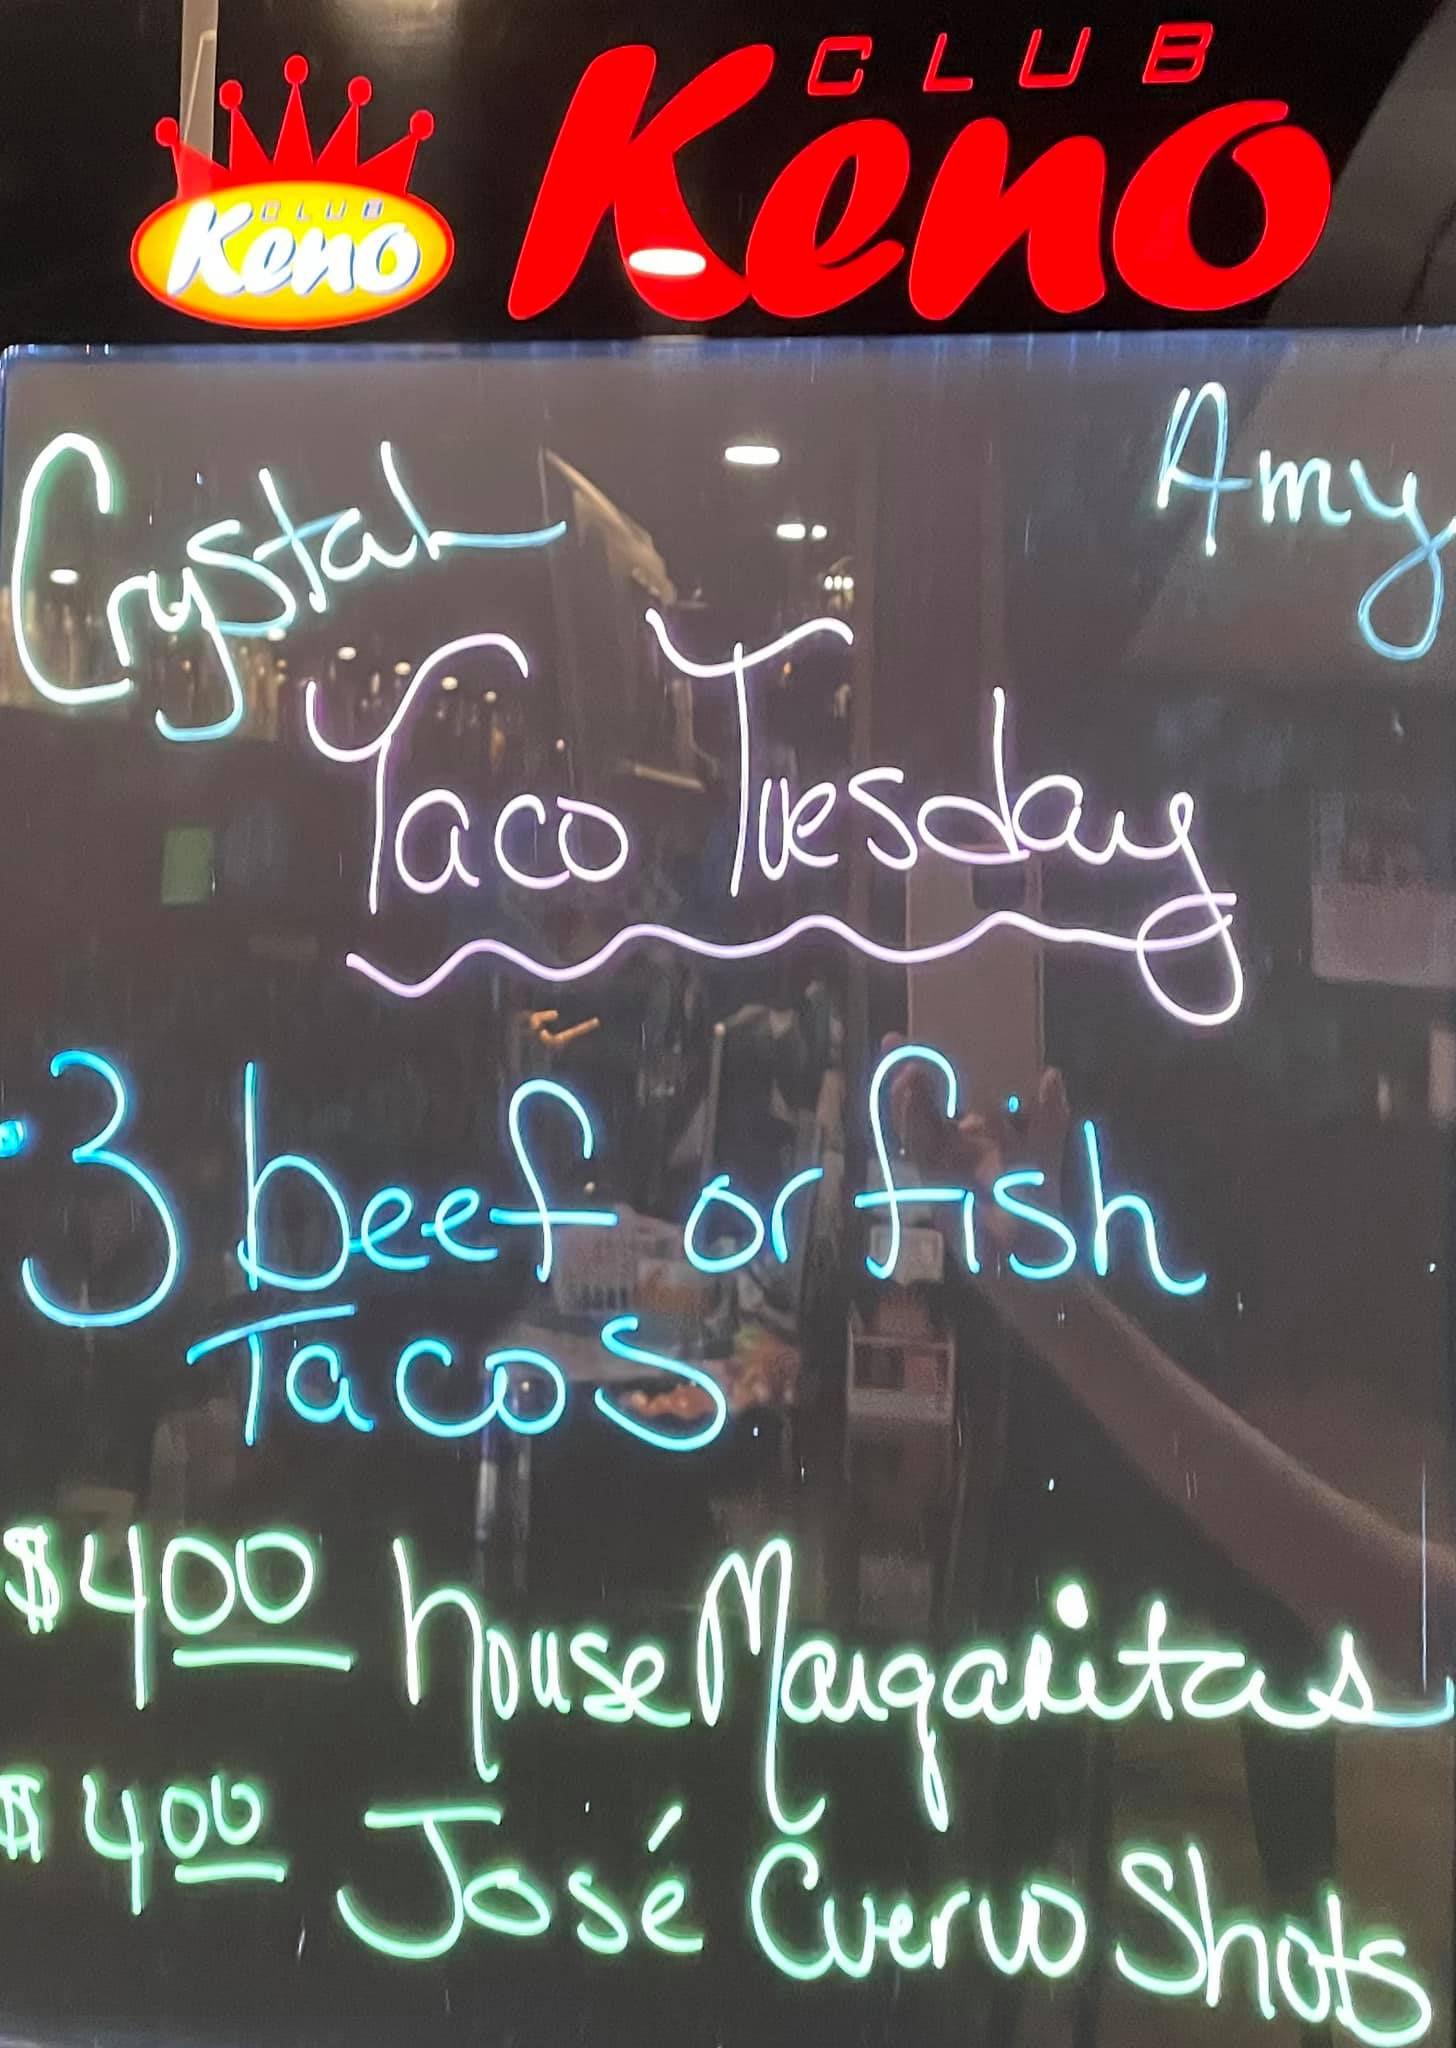 CLUB
Keno
CLUB
Keno
Crystal
Amy
Taco Tuesday
3 beef or fish
Tacos
$4.00 house Margaritas
$4.00 José Cuervo Shots